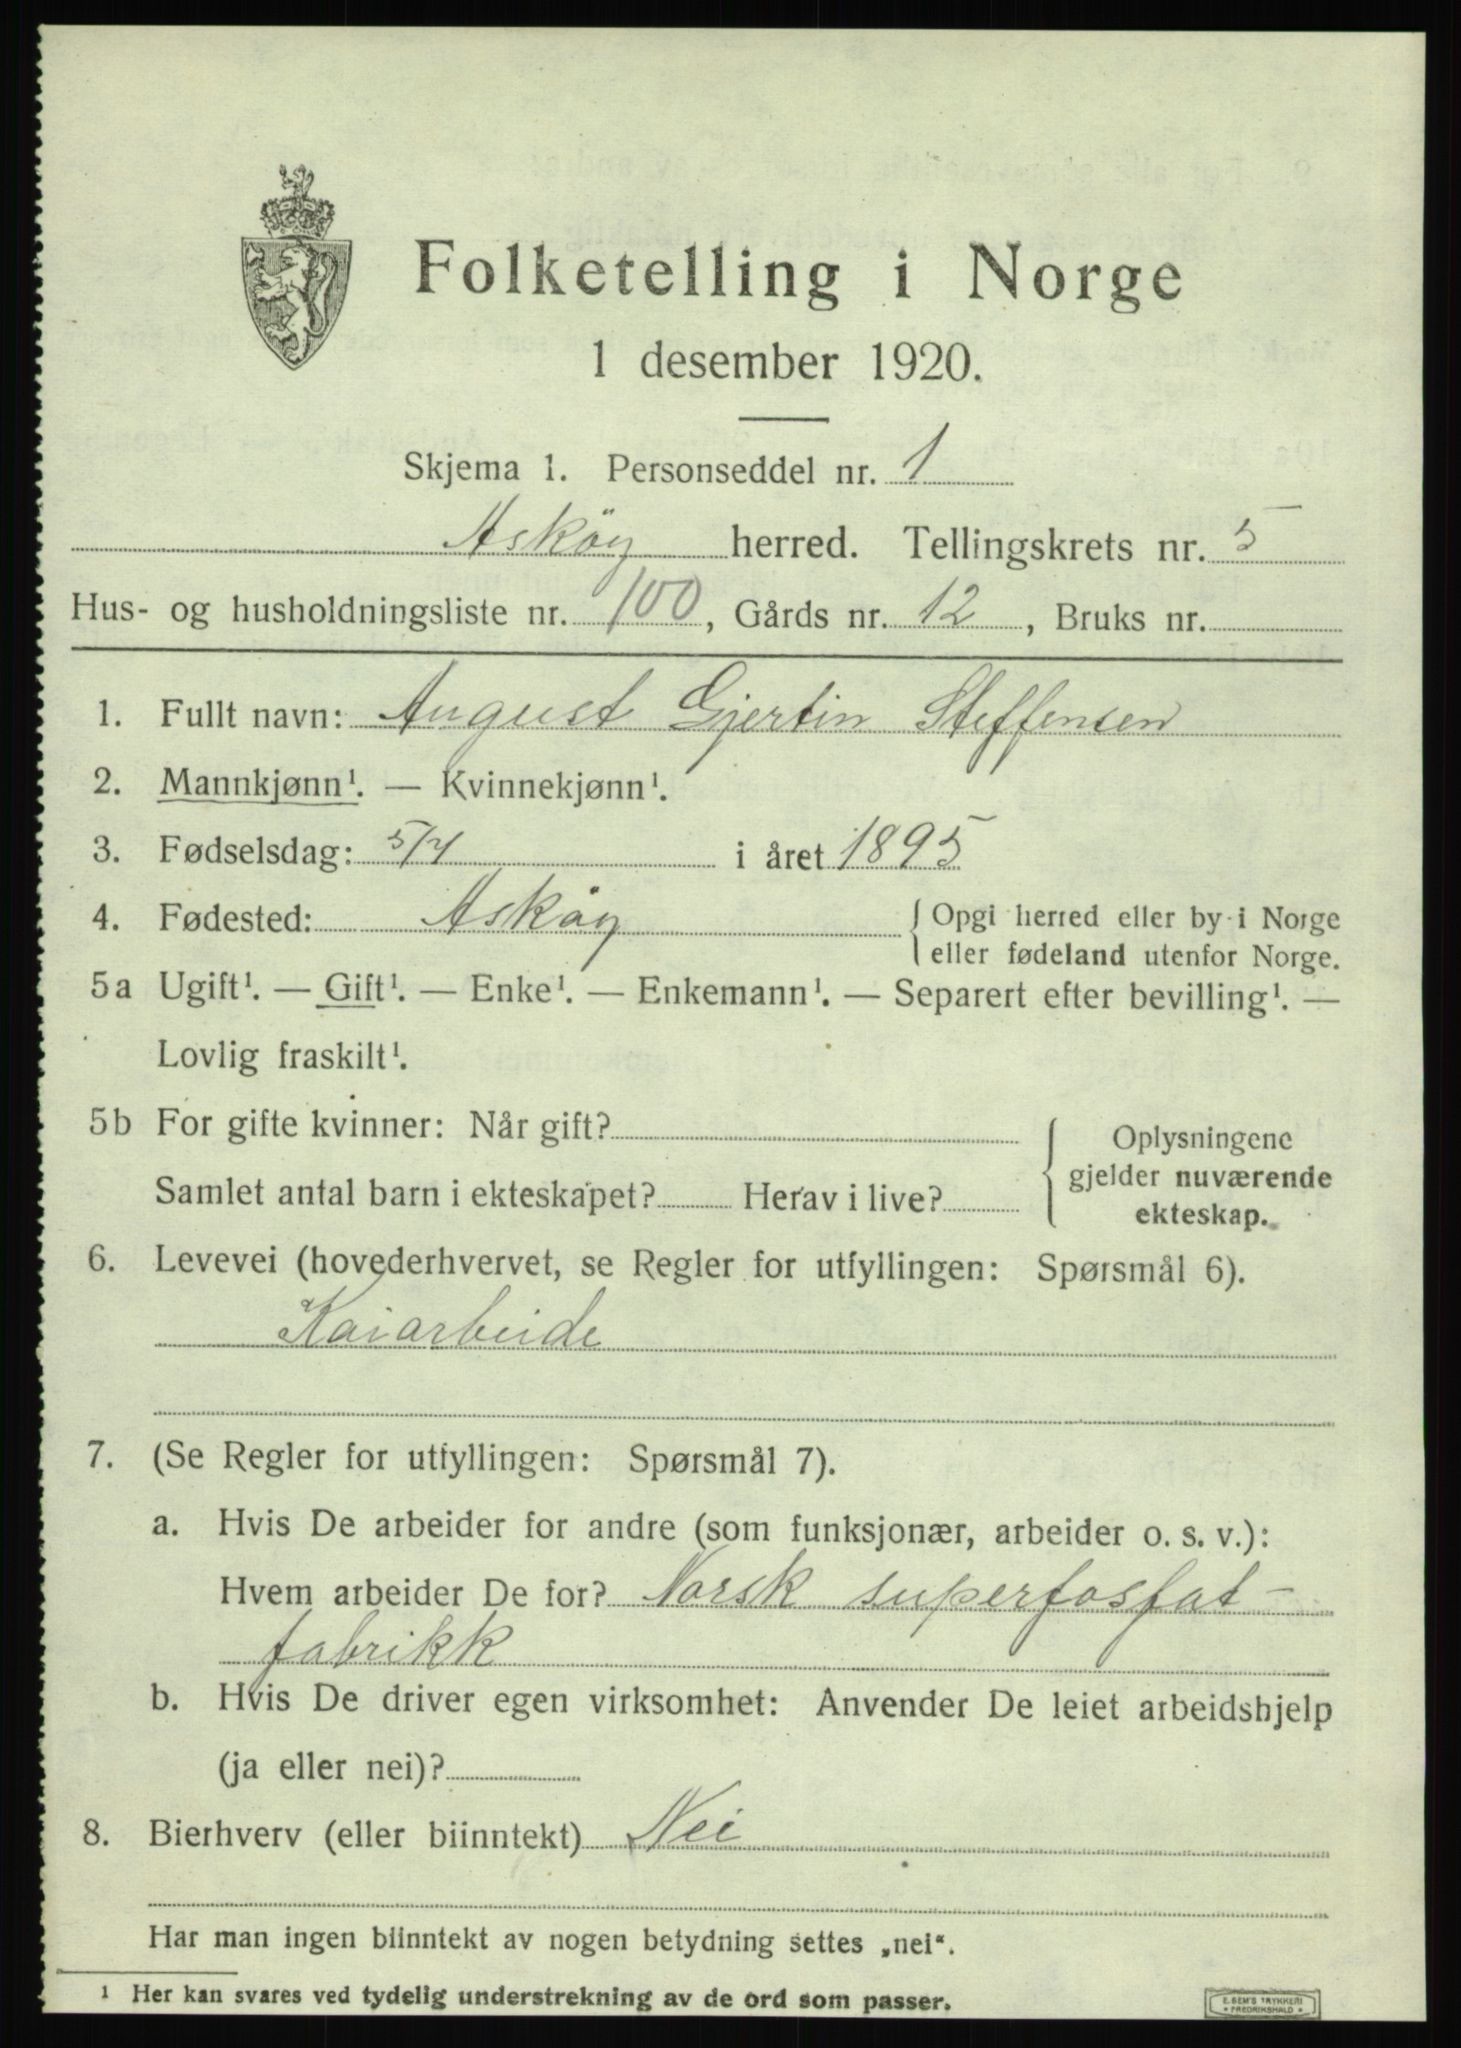 Folketelling i Norge
1 desember 1920.
Skjema 1. Personseddel nr. 1
Asköy herred. Tellingskrets nr. 5
Hus- og husholdningsliste nr. 100, Gårds nr. 12, Bruks nr.
1. Fullt navn: August Gjertin Steffensen
2. Mannkjønn¹. — Kvinnekjønn¹.
3. Fødselsdag: 5/7 i året 1895
4. Fødested: Asköy { Opgi herred eller by i Norge
eller fødeland utenfor Norge.
5a Ugift¹. — Gift¹. — Enke¹. — Enkemann¹. — Separert efter bevilling¹. —
Lovlig fraskilt¹.
5b For gifte kvinner: Når gift?
Samlet antal barn i ekteskapet? Herav i live?
{ Oplysningene
gjelder nuværende
ekteskap.
6. Levevei (hovederhvervet, se Regler for utfyllingen: Spørsmål 6).
Kaiarbeide
7. (Se Regler for utfyllingen: Spørsmål 7).
a. Hvis De arbeider for andre (som funksjonær, arbeider o. s. v.):
Hvem arbeider De for? Norsk superfosfat-
fabrikk
b. Hvis De driver egen virksomhet: Anvender De leiet arbeidshjelp
(ja eller nei)?
8. Bierhverv (eller biinntekt) Nei
Har man ingen biinntekt av nogen betydning settes „nei“.
¹ Her kan svares ved tydelig understrekning av de ord som passer.
E. SEM'S TRYKKERI
• FREDRIKSHALD •